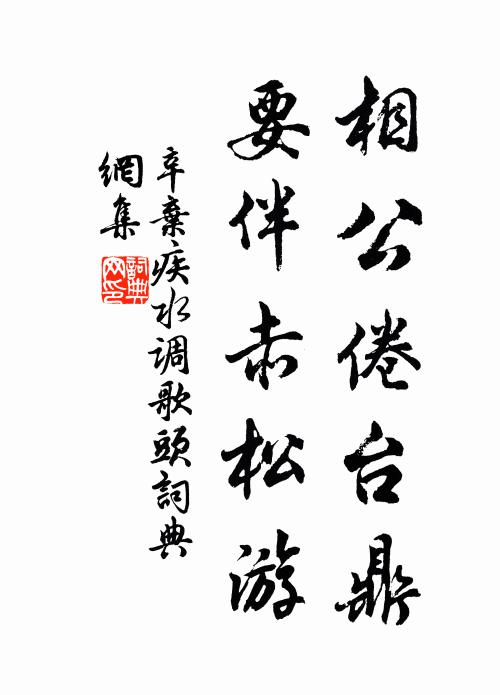 相公倦台鼎
要伴赤松游
辛棄疾水调歌頭詞典
網集
詞典
网印